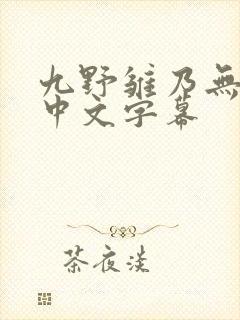 九野雏乃無
中文字幕
茶夜淡